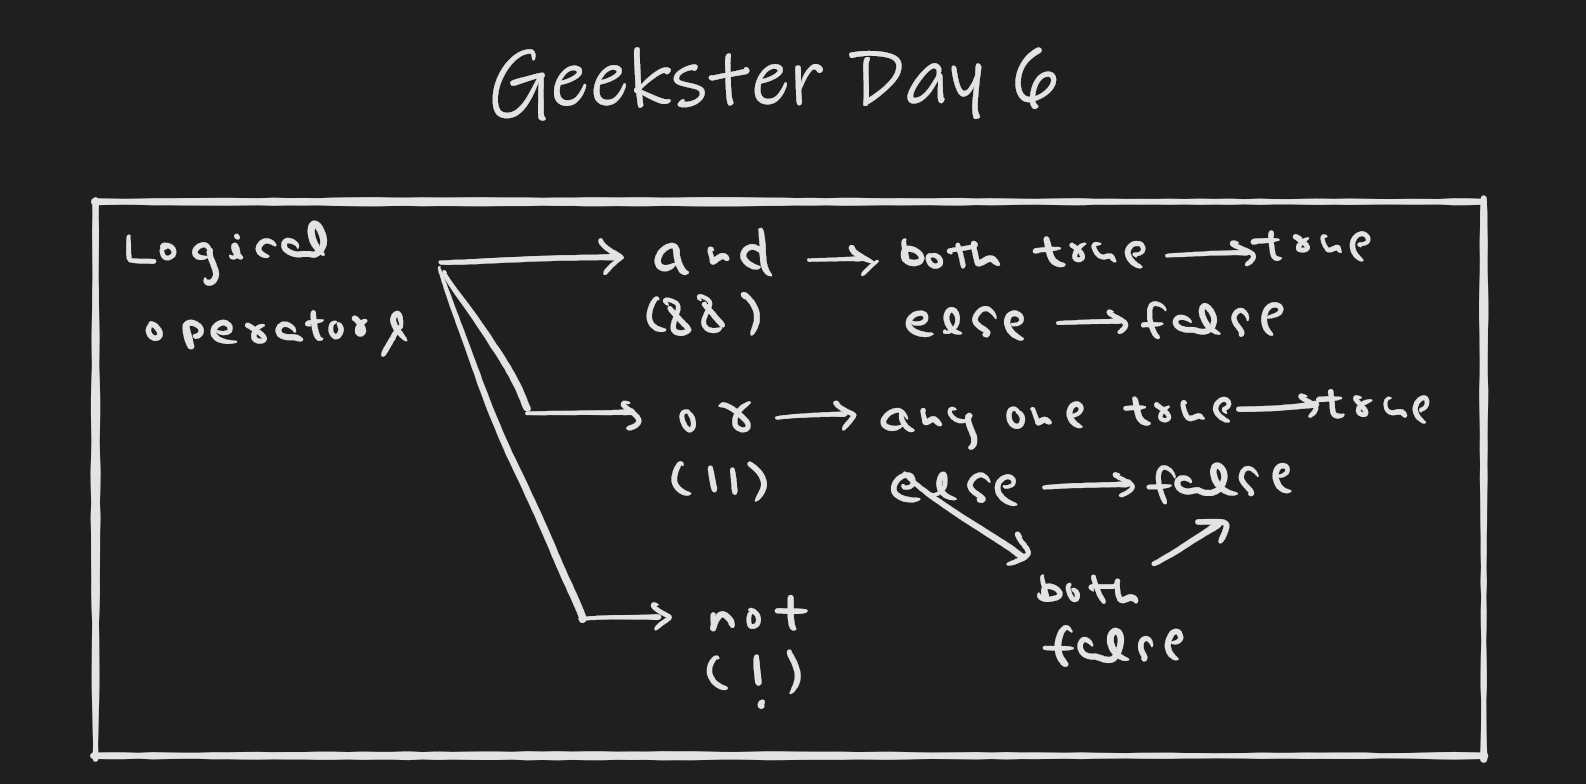 Geekster Day 6
Logical operators
and → both true → true
(&&) else → false
or → any one true → true
(||) else → false
both false
not
(!)